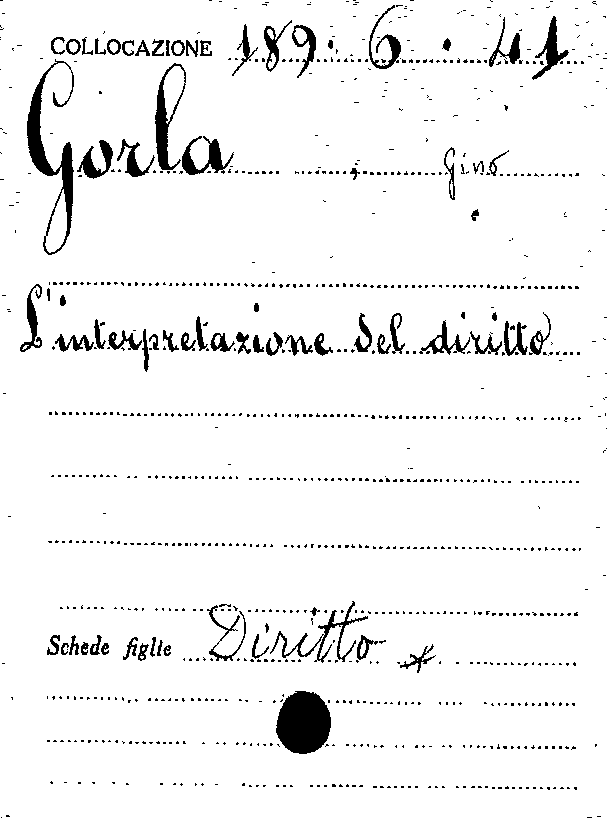 COLLOCAZIONE 189. 6. 41
Gorla, Gino
L'interpretazione del diritto
Schede figlie Diritto *